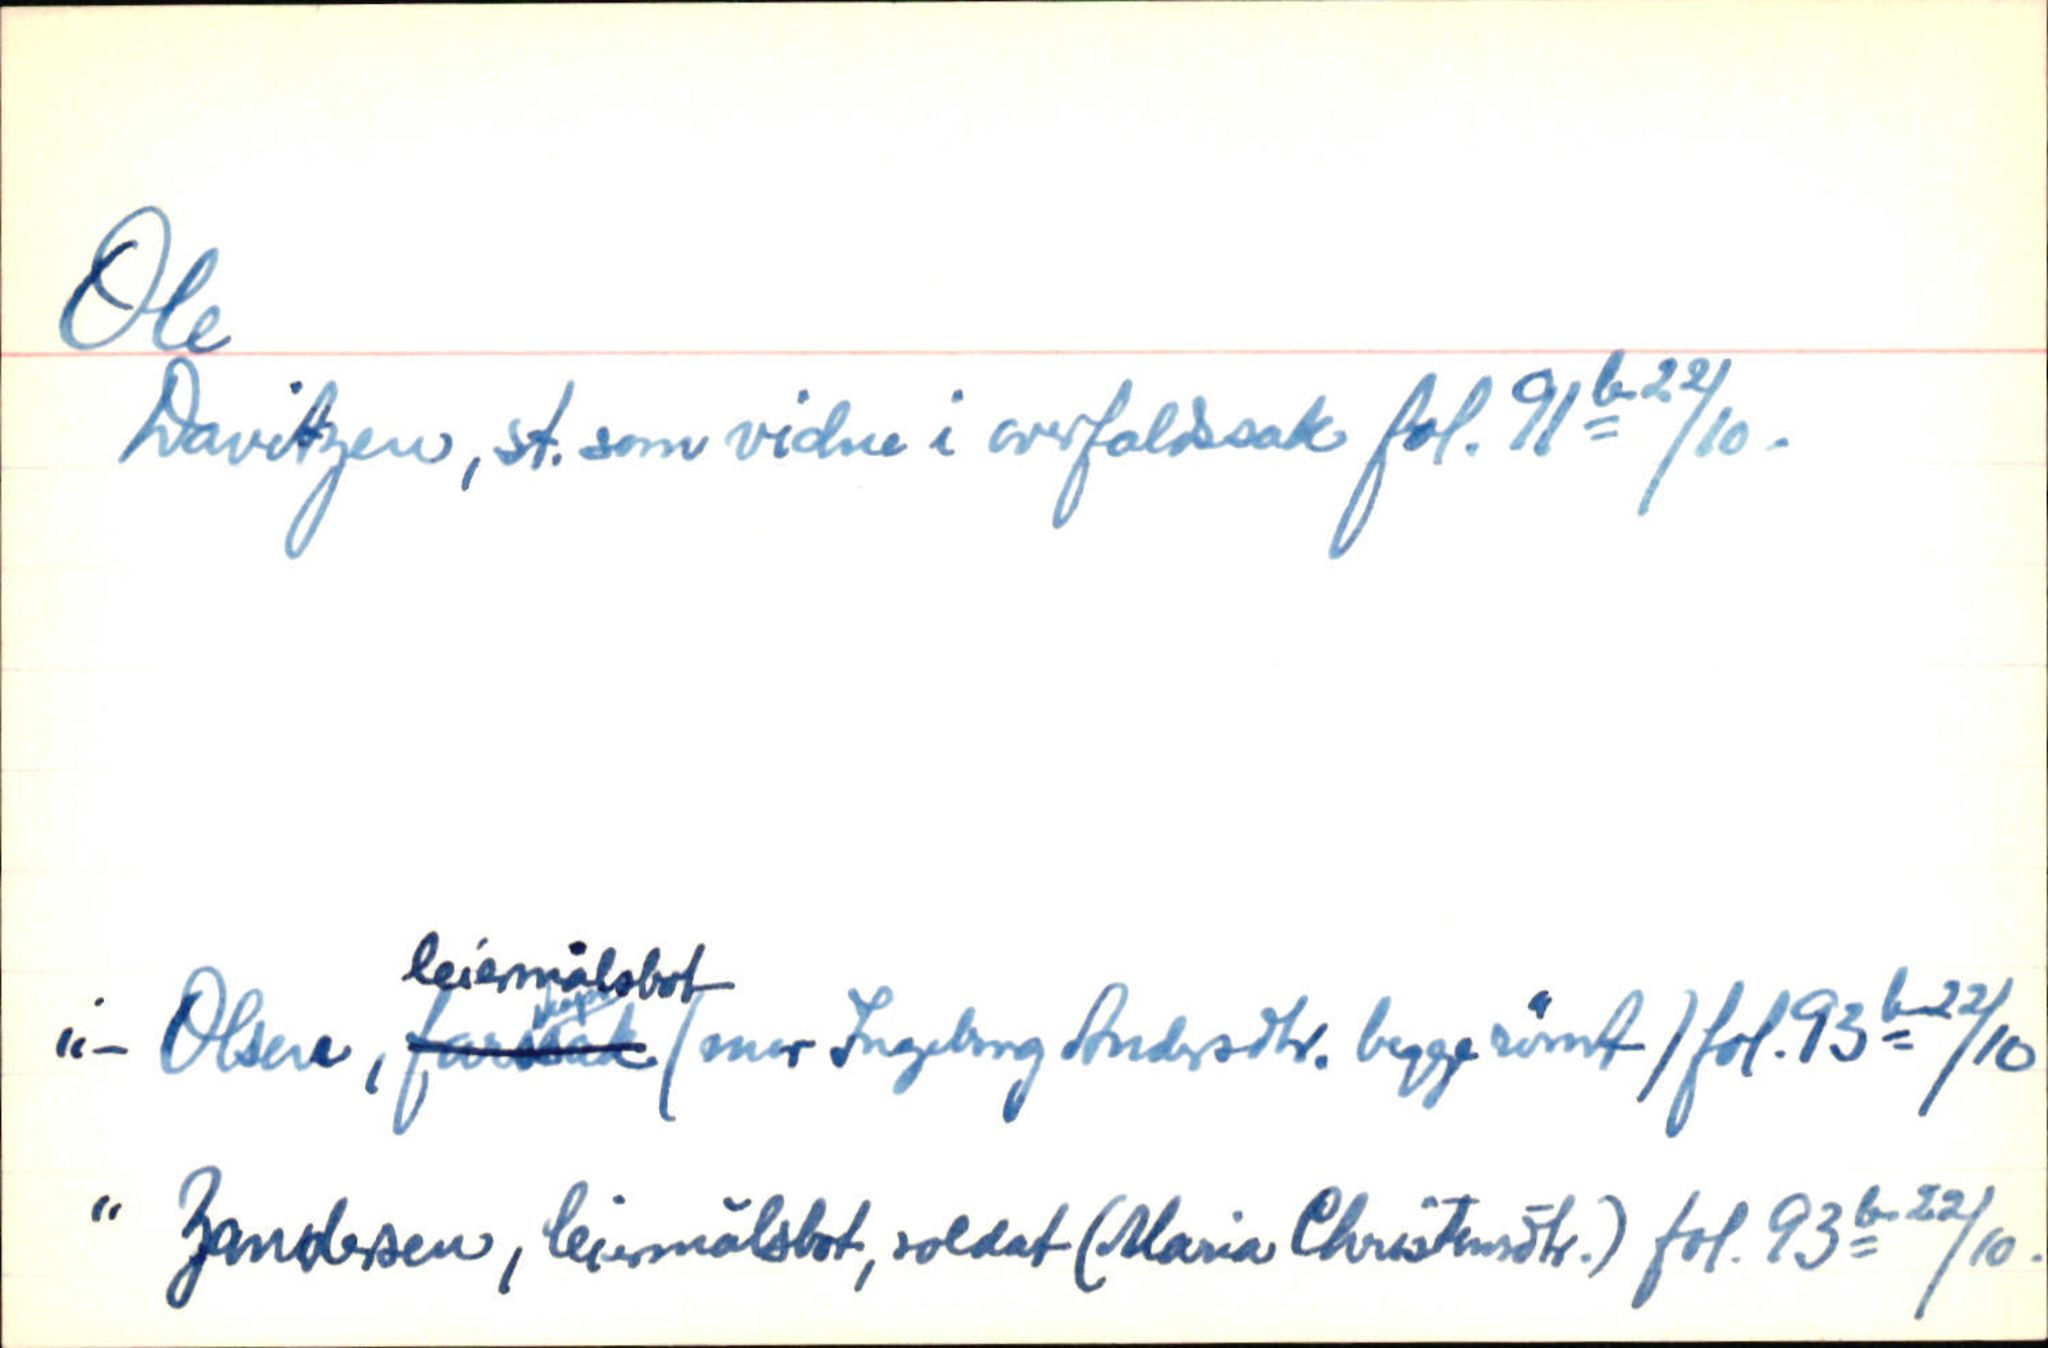 Ole
Davitzen, st. som vidne i overfaldssak fol. 91b 22/10.
leiermålsbot
"- Olsen, farssak (mor Ingeborg Andersdtr. begge römt) fol. 93b 22/10
" Zandersen, leiermålsbot, soldat (Maria Christensdtr.) fol. 93b 22/10.